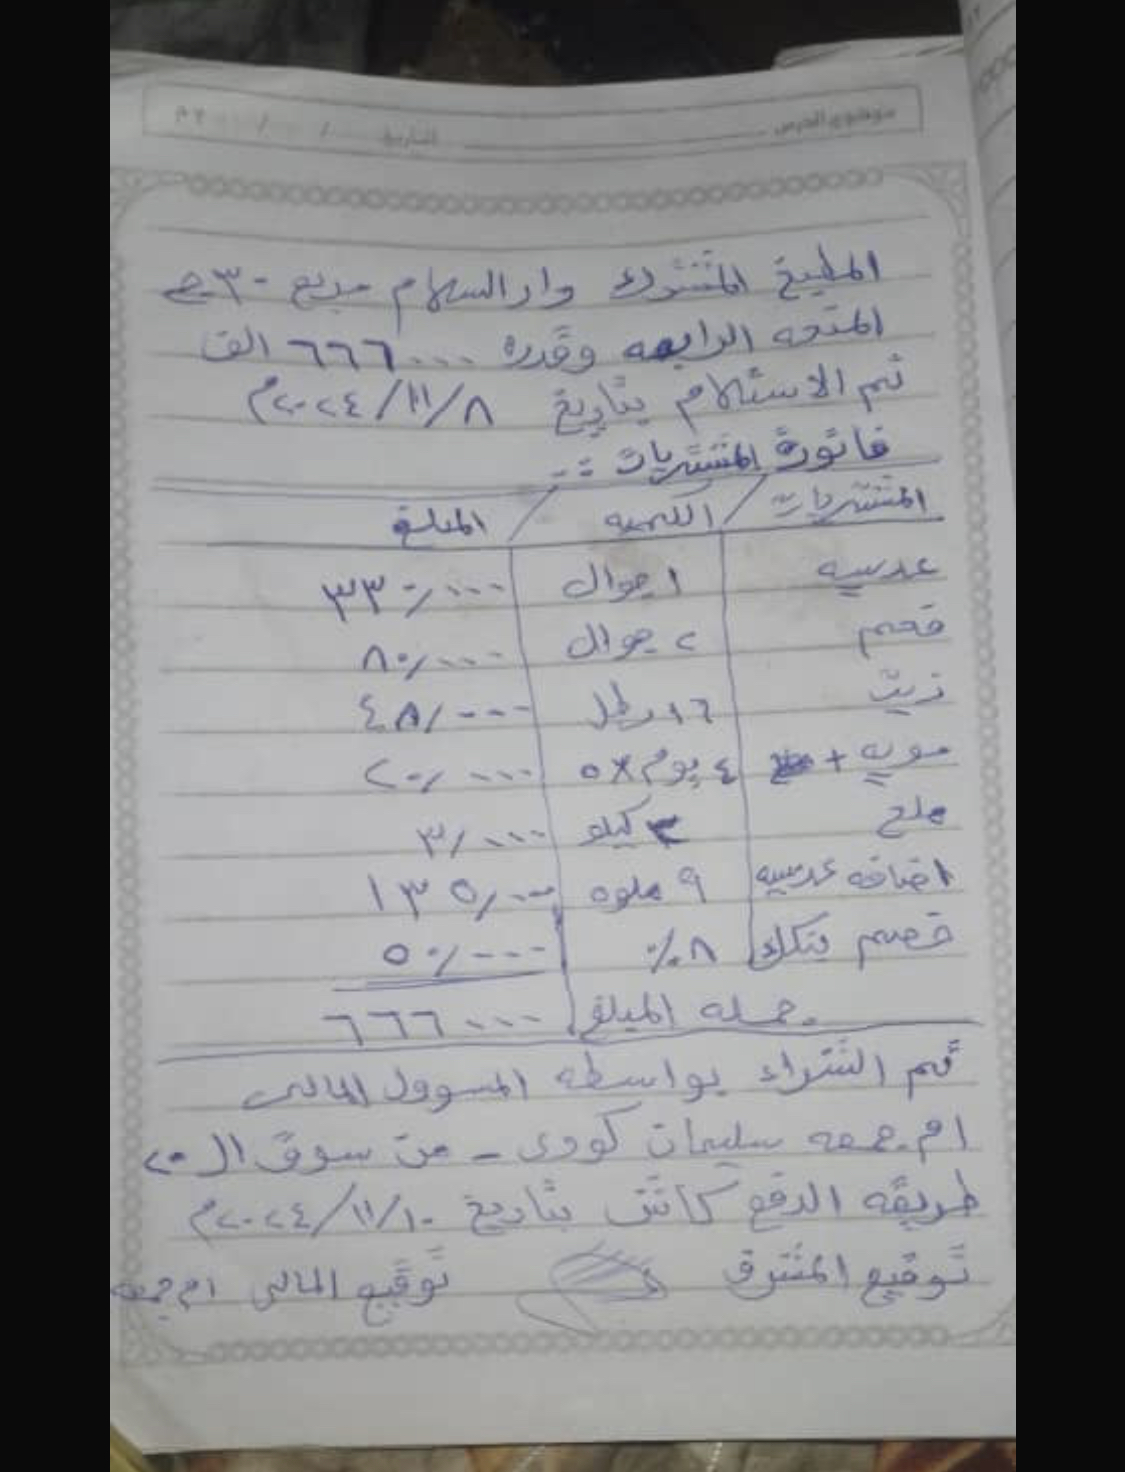 موضوع الدرس التاريخ / / ٢٠ م
المطبخ المشترك دار السلام مربع ٣٠ ج
المنحه الرابعه وقدره ٦٦٦٠٠٠ الف
تم الاستلام بتاريخ ٢٠٢٤/١١/٨م
فاتورة المشتريات :-
المشتريات / الكميه / المبلغ
عدسيه ١ جوال ٣٣٠/٠٠٠
فحم ٢ جوال ٨٠/٠٠٠
زيت ١٦ رطل ٤٨/٠٠٠
مويه + ٤ يوم × ٥ ٢٠/٠٠٠
ملح ٣ كيلو ٣/٠٠٠
اضافه عدسيه ٩ ملوه ١٣٥/٠٠٠
خصم بنكك ٨٪ ٥٠/٠٠٠
جمله المبلغ ٦٦٦٠٠٠
تم الشراء بواسطه المسوول المالى
ام جمعه سليمان كودى - من سوق ال ٢٠
طريقه الدفع كاش بتاريخ ٢٠٢٤/١١/١٠م
توقيع المشرف توقيع المالى ام جمعه